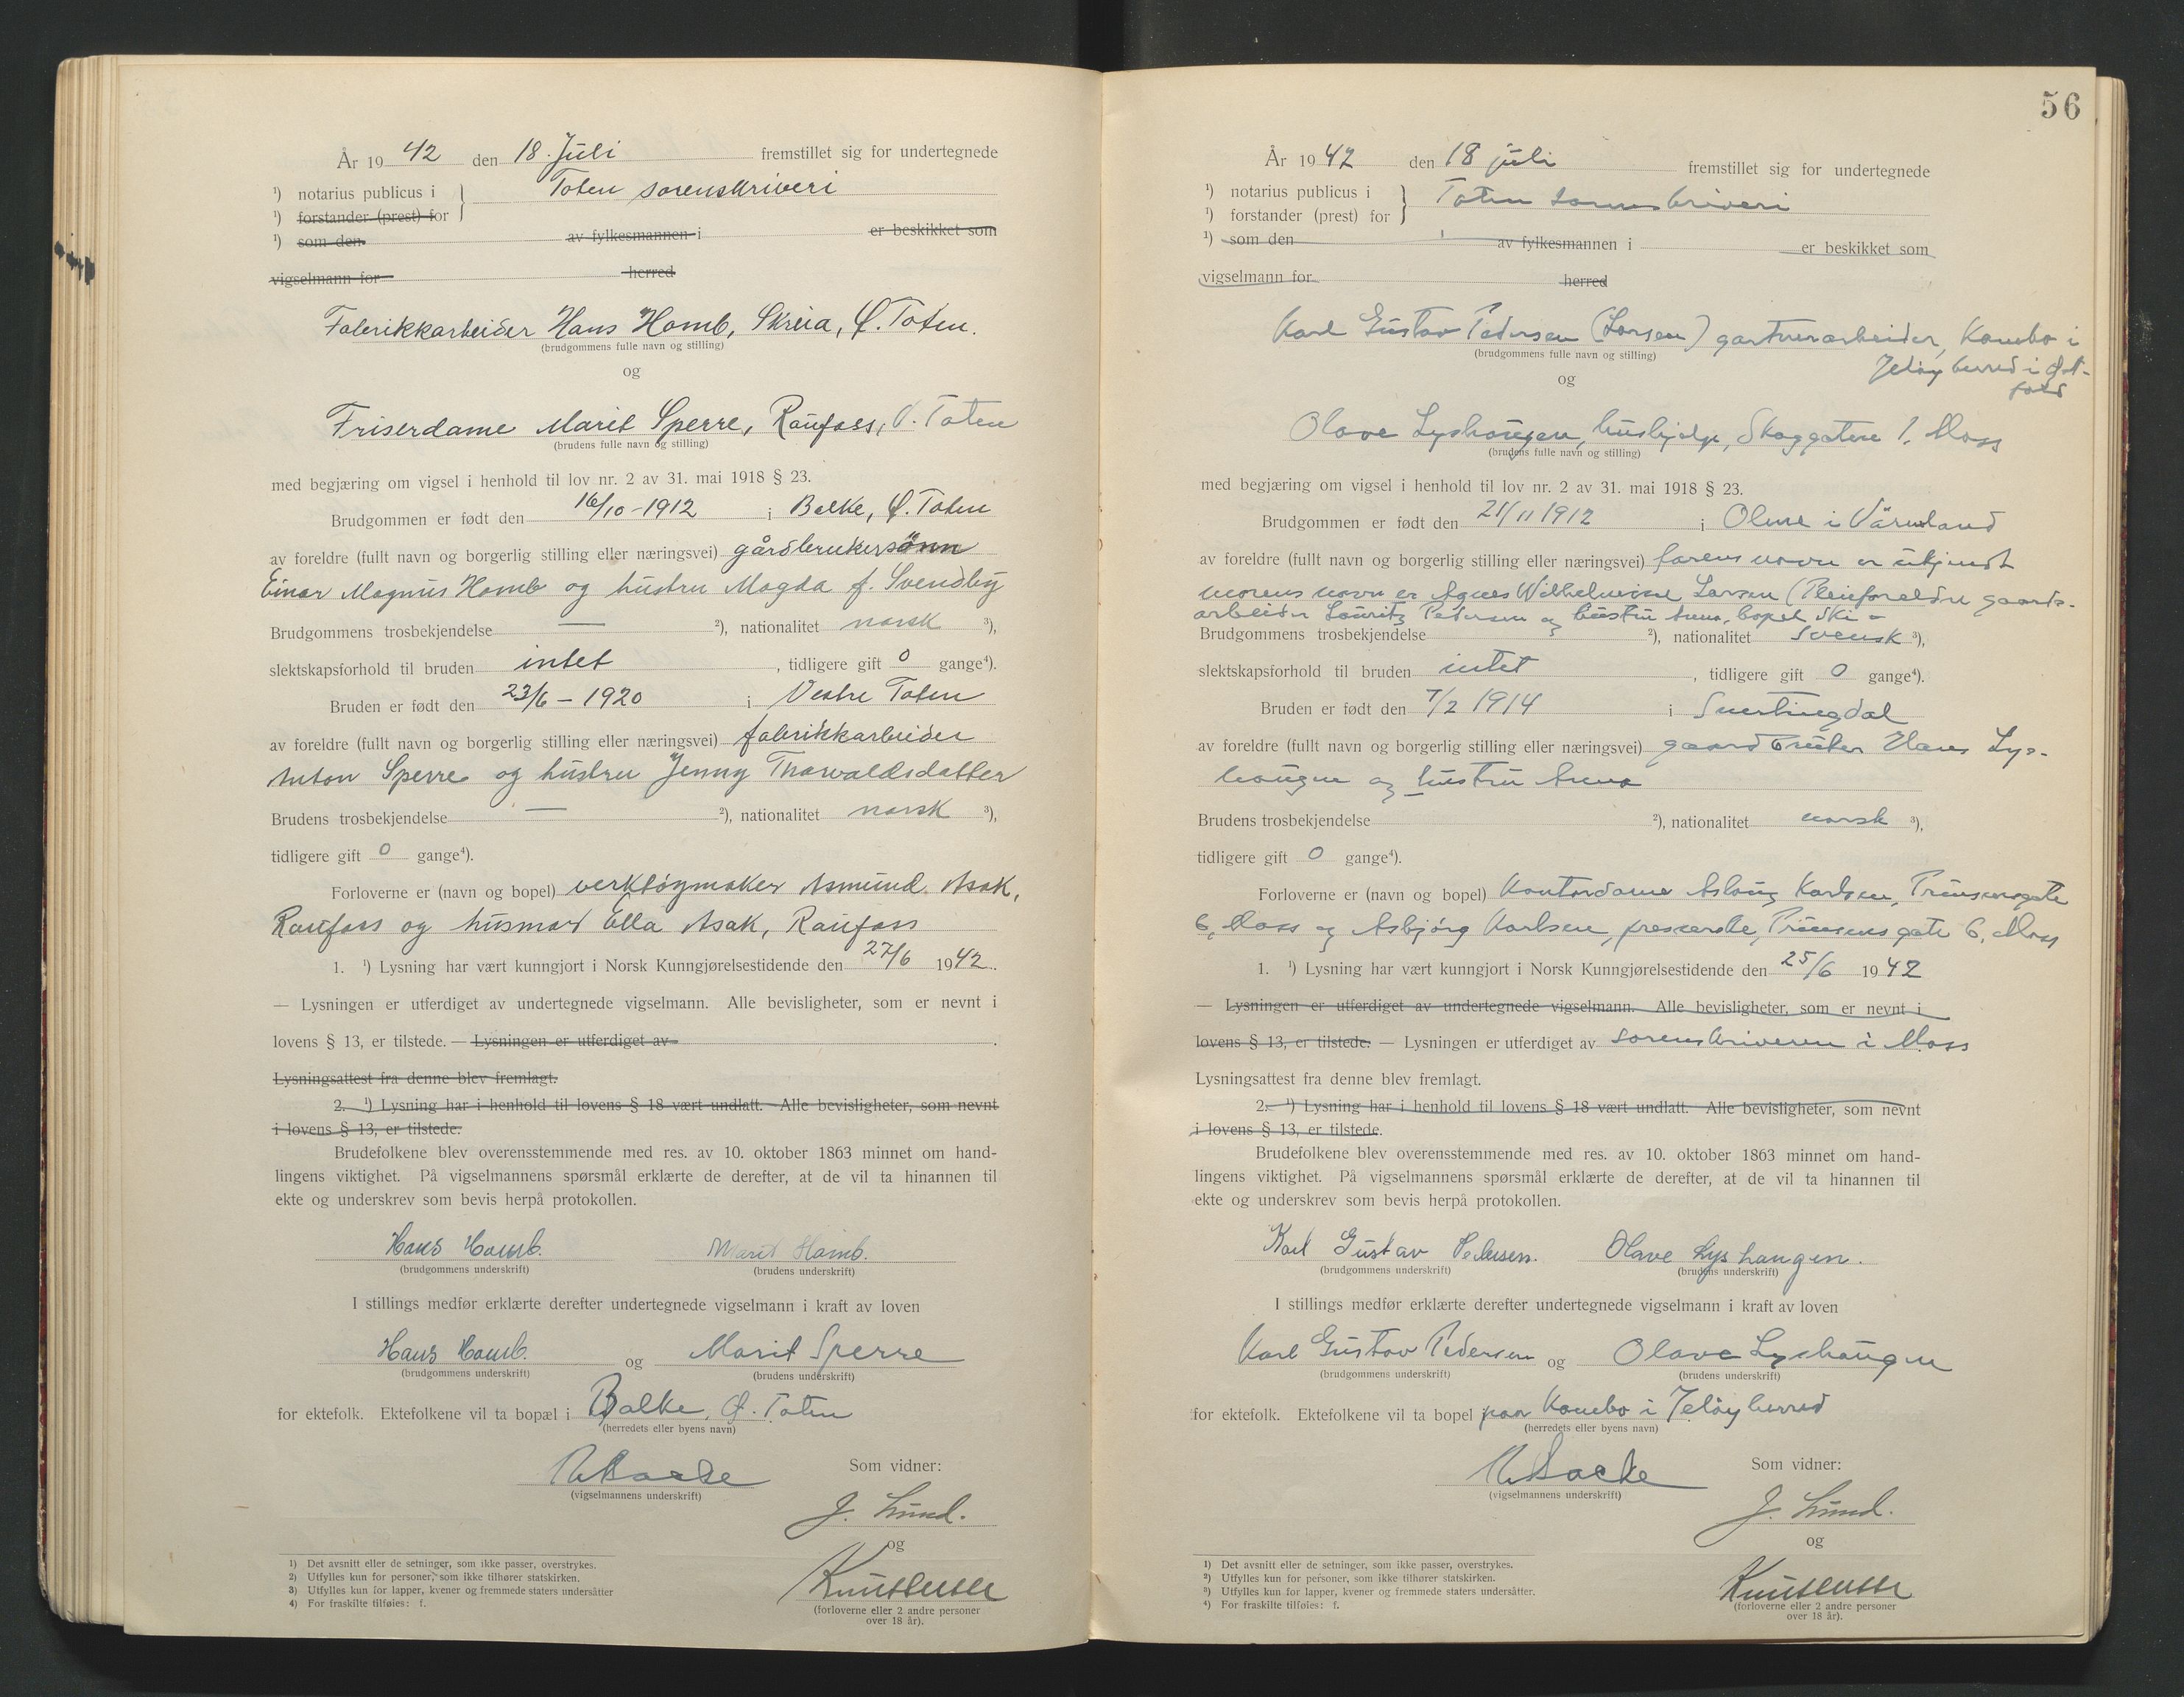 År 1942 den 18. Juli fremstillet sig for undertegnede
¹) notarius publicus i } Toten sorenskriveri
¹) forstander (prest) for
¹) som den av fylkesmannen i er beskikket som
vigselmann for herred
Fabrikkarbeider Hans Homb, Skreia, Ø. Toten.
(brudgommens fulle navn og stilling)
og
Friserdame Marit Sperre, Raufoss, V. Toten
(brudens fulle navn og stilling)
med begjæring om vigsel i henhold til lov nr. 2 av 31. mai 1918 § 23.
Brudgommen er født den 16/10-1912 i Balke, Ø. Toten
av foreldre (fullt navn og borgerlig stilling eller næringsvei) gårdbruker sønn
Einar Magnus Homb og hustru Magda f. Svendby
Brudgommens trosbekjendelse — ²), nationalitet norsk ³),
slektskapsforhold til bruden intet, tidligere gift 0 gange⁴).
Bruden er født den 23/6 - 1920 i Vestre Toten
av foreldre (fullt navn og borgerlig stilling eller næringsvei) fabrikkarbeider
Anton Sperre og hustru Jenny Thorvaldsdatter
Brudens trosbekjendelse — ²), nationalitet norsk ³),
tidligere gift 0 gange⁴).
Forloverne er (navn og bopel) verktøymaker Asmund Asak,
Raufoss og husmor Ella Asak, Raufoss
1. ¹) Lysning har vært kunngjort i Norsk Kunngjørelsestidende den 27/6 1942.
— Lysningen er utferdiget av undertegnede vigselmann. Alle bevisligheter, som er nevnt i
lovens § 13, er tilstede. — Lysningen er utferdiget av .
Lysningsattest fra denne blev fremlagt.
2. ¹) Lysning har i henhold til lovens § 18 vært undlatt. Alle bevisligheter, som nevnt
i lovens § 13, er tilstede.
Brudefolkene blev overensstemmende med res. av 10. oktober 1863 minnet om hand-
lingens viktighet. På vigselmannens spørsmål erklærte de derefter, at de vil ta hinannen til
ekte og underskrev som bevis herpå protokollen.
Hans Homb. Marit Homb.
(brudgommens underskrift) (brudens underskrift)
I stillings medfør erklærte derefter undertegnede vigselmann i kraft av loven
Hans Homb. og Marit Sperre
(brudgommens underskrift) (brudens underskrift)
for ektefolk. Ektefolkene vil ta bopæl i Balke, Ø. Toten
(herredets eller byens navn)
Som vidner:
(vigselmannens underskrift)
J. Lund.
og
(forloverne eller 2 andre personer
over 18 år).
1) Det avsnitt eller de setninger, som ikke passer, overstrykes.
2) Utfylles kun for personer, som ikke tilhører statskirken.
3) Utfylles kun for lapper, kvener og fremmede staters undersåtter
4) For fraskilte tilføies: f.
56
År 1942 den 18 juli fremstillet sig for undertegnede
¹) notarius publicus i } Toten sorenskriveri
¹) forstander (prest) for
¹) som den av fylkesmannen i er beskikket som
vigselmann for herred
Karl Gustav Pedersen (Larsen) gartnerarbeider, Kambo i
Jeløy herred i Øst-
fold
(brudgommens fulle navn og stilling)
og
Olave Lyshaugen, hushjelp, Skoggatene 1, Moss
(brudens fulle navn og stilling)
med begjæring om vigsel i henhold til lov nr. 2 av 31. mai 1918 § 23.
Brudgommen er født den 21/11 1912 i Olme i Värmland
av foreldre (fullt navn og borgerlig stilling eller næringsvei) farens navn er ukjendt
morens navn er Agnes Wilhelmine Larsen (Pleieforeldre gaards-
arbeider Lauritz Pedersen og hustru Anna, bopel Ski -
Brudgommens trosbekjendelse ²), nationalitet svensk ³),
slektskapsforhold til bruden intet, tidligere gift 0 gange⁴).
Bruden er født den 7/2 1914 i Snertingdal
av foreldre (fullt navn og borgerlig stilling eller næringsvei) gaardbruker Hans Lys-
haugen og hustru Anna
Brudens trosbekjendelse ²), nationalitet norsk ³),
tidligere gift 0 gange⁴).
Forloverne er (navn og bopel) Kontordame Aslaug Karlsen, Prinsensgate
6, Moss og Asbjørg Karlsen, Prinsens gate 6, Moss
1. ¹) Lysning har vært kunngjort i Norsk Kunngjørelsestidende den 25/6 1942
— Lysningen er utferdiget av undertegnede vigselmann. Alle bevisligheter, som er nevnt i
lovens § 13, er tilstede. — Lysningen er utferdiget av sorenskriveren i Moss
Lysningsattest fra denne blev fremlagt.
2. ¹) Lysning har i henhold til lovens § 18 vært undlatt. Alle bevisligheter, som nevnt
i lovens § 13, er tilstede.
Brudefolkene blev overensstemmende med res. av 10. oktober 1863 minnet om hand-
lingens viktighet. På vigselmannens spørsmål erklærte de derefter, at de vil ta hinannen til
ekte og underskrev som bevis herpå protokollen.
Karl Gustav Pedersen. Olave Lyshaugen.
(brudgommens underskrift) (brudens underskrift)
I stillings medfør erklærte derefter undertegnede vigselmann i kraft av loven
Karl Gustav Pedersen og Olave Lyshaugen
(brudgommens underskrift) (brudens underskrift)
for ektefolk. Ektefolkene vil ta bopel paa Kambo i Jeløy herred
(herredets eller byens navn)
Som vidner:
(vigselmannens underskrift)
J. Lund.
og
(forloverne eller 2 andre personer
over 18 år).
1) Det avsnitt eller de setninger, som ikke passer, overstrykes.
2) Utfylles kun for personer, som ikke tilhører statskirken.
3) Utfylles kun for lapper, kvener og fremmede staters undersåtter.
4) For fraskilte tilføies: f.